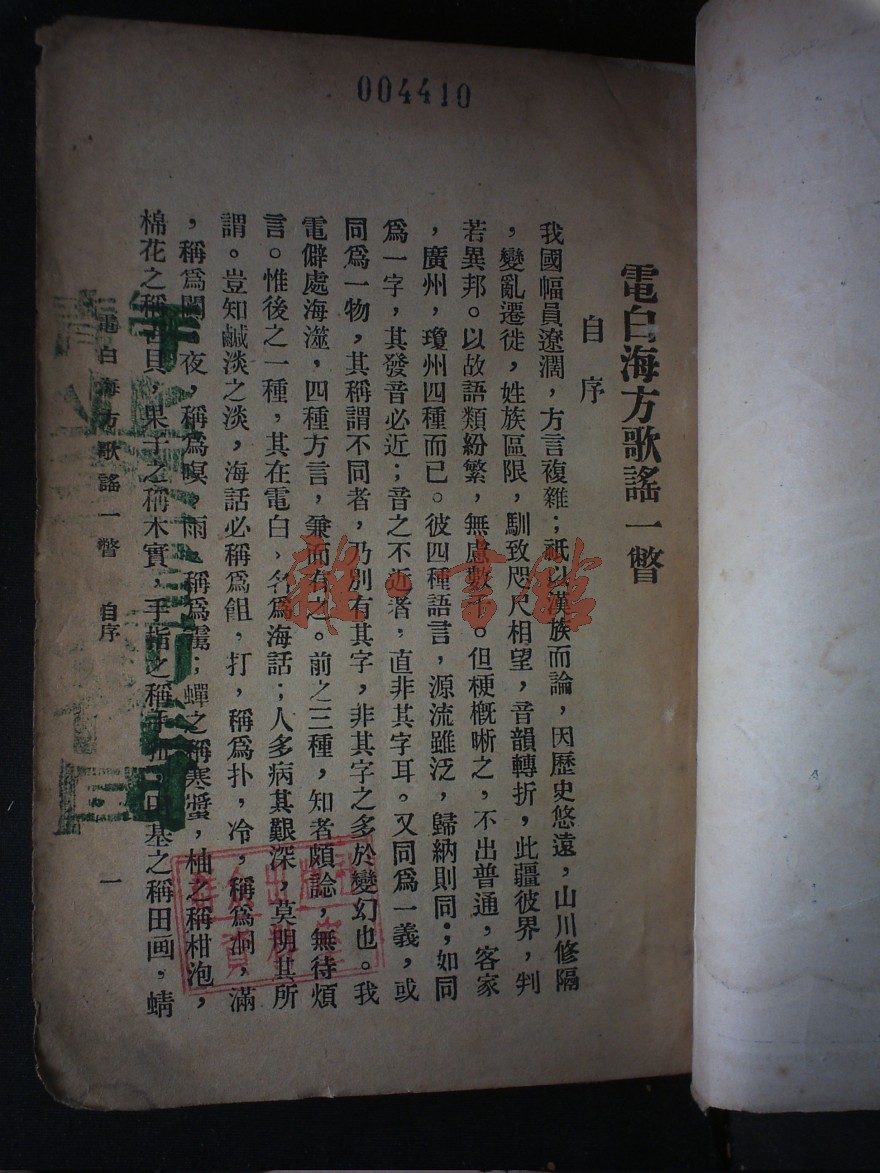 004410
電白海方歌謠一瞥
自序
我國幅員遼濶，方言複雜；祇以漢族而論，因歷史悠遠，山川修隔
，變亂遷徙，姓族區限，馴致咫尺相望，音韻轉折，此疆彼界，判
若異邦。以故語類紛繁，無慮數十。但梗概晰之，不出普通，客家
，廣州，瓊州四種而已。彼四種語言，源流雖泛，歸納則同；如同
爲一字，其發音必近；音之不近者，直非其字耳。又同爲一義，或
同爲一物，其稱謂不同者，乃別有其字，非其字之多於變幻也。我
電僻處海澨，四種方言，兼而有之。前之三種，知者頗諗，無待煩
言。惟後之一種，其在電白、名爲海話；人多病其艱深，莫明其所
謂。豈知鹹淡之淡，海話必稱爲飷，打，稱爲扑，冷，稱爲浻，滿
，稱爲 夜，稱爲暝，雨，稱爲霭；蟬之稱寒螀，柚之稱柑泡，
棉花之稱吉貝，果子之稱木實，手指之稱手 田基之稱田画，蜻
電白海方歌謠一瞥 自序 一
雜·書館
羣衆出版社
資料室